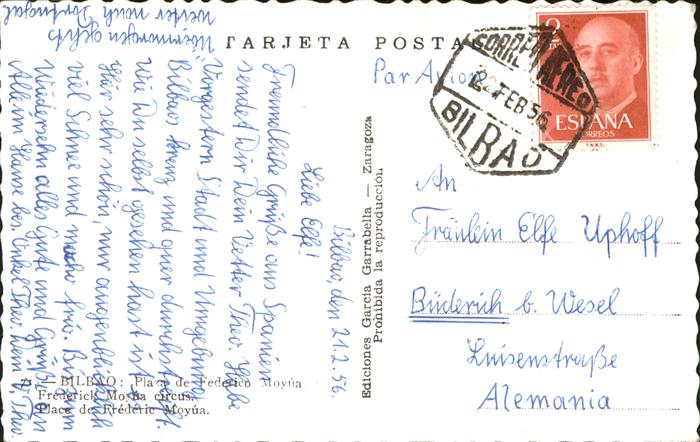 TARJETA POSTAL
Par Avion
CORREO AEREO
22 FEB 56
BILBAO
2
PTAS
ESPAÑA
CORREOS
F.N.M.T.
An
Fräulein Elfe Uphoff
Büderich b. Wesel
Luisenstraße
Alemania
Ediciones García Garrabella — Zaragoza
Prohibida la reproducción
Bilbao, den 21.2.56.
Liebe Elfe!
Freundliche Grüße aus Spanien
sendet Dir Dein Vetter Theo. Habe
Vorgestern Stadt und Umgebung
Bilbaos kreuz und quer durchstreift.
Wie Du selbst gesehen hast ist es
hier sehr schön, nur augenblicklich
viel Schnee und mehr früh. Bis zum
Wiedersehn alles Gute und Grüße an
Alle im Hause bes. Onkel Theo. Dein V. Theo
Übermorgen geht's
weiter nach Portugal
— BILBAO: Plaza de Federico Moyúa
Frederick Moyua circus.
Place de Fréderic Moyúa.